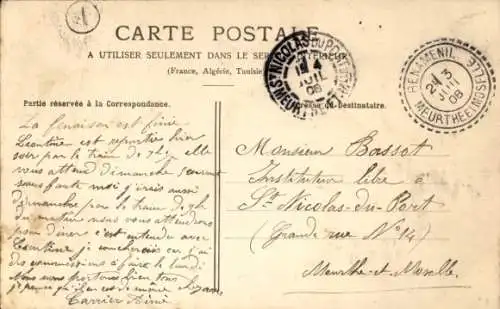 CARTE POSTALE
A UTILISER SEULEMENT DANS LE SERVICE INTÉRIEUR
(France, Algérie, Tunisie
Partie réservée à la Correspondance.
Adresse du Destinataire.
ST NICOLAS DU PORT
JUIL
08
MEURTHE
BENAMENIL
3
JUIL
08
MEURTHE ET MOSELLE
La fenaison est finie
Léontine est repartie hier
soir par le train de 7h, elle
vous attend dimanche
sans faute moi j'irais aussi
dimanche par le train de 7h
du matin nous vous attendrons
pour c'est entendu avec
Léontine je coucherais
commissions à faire le lundi
Nous nous portons bien tous
je pense qu'il en est de même
Carrier Aimé
Monsieur Bassot
Instituteur libre à
St Nicolas-du-Port
(Grande rue No 14)
Meurthe-et-Moselle